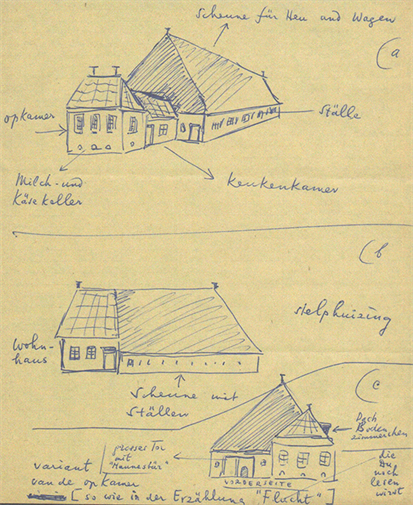 Scheune für Heu und Wagen
a
opkamer
Ställe
Milch- und
Käsekeller
Keukenkamer
b
stelphuizing
Wohn-
haus
Scheune mit
Ställen
c
Dach
Boden
zimmerchen
grosses Tor
mit
"Mannestür"
variant
van de opkamer
VORDERSEITE
[so wie in der Erzählung "Flucht"]
die
Du
noch
lesen
wirst